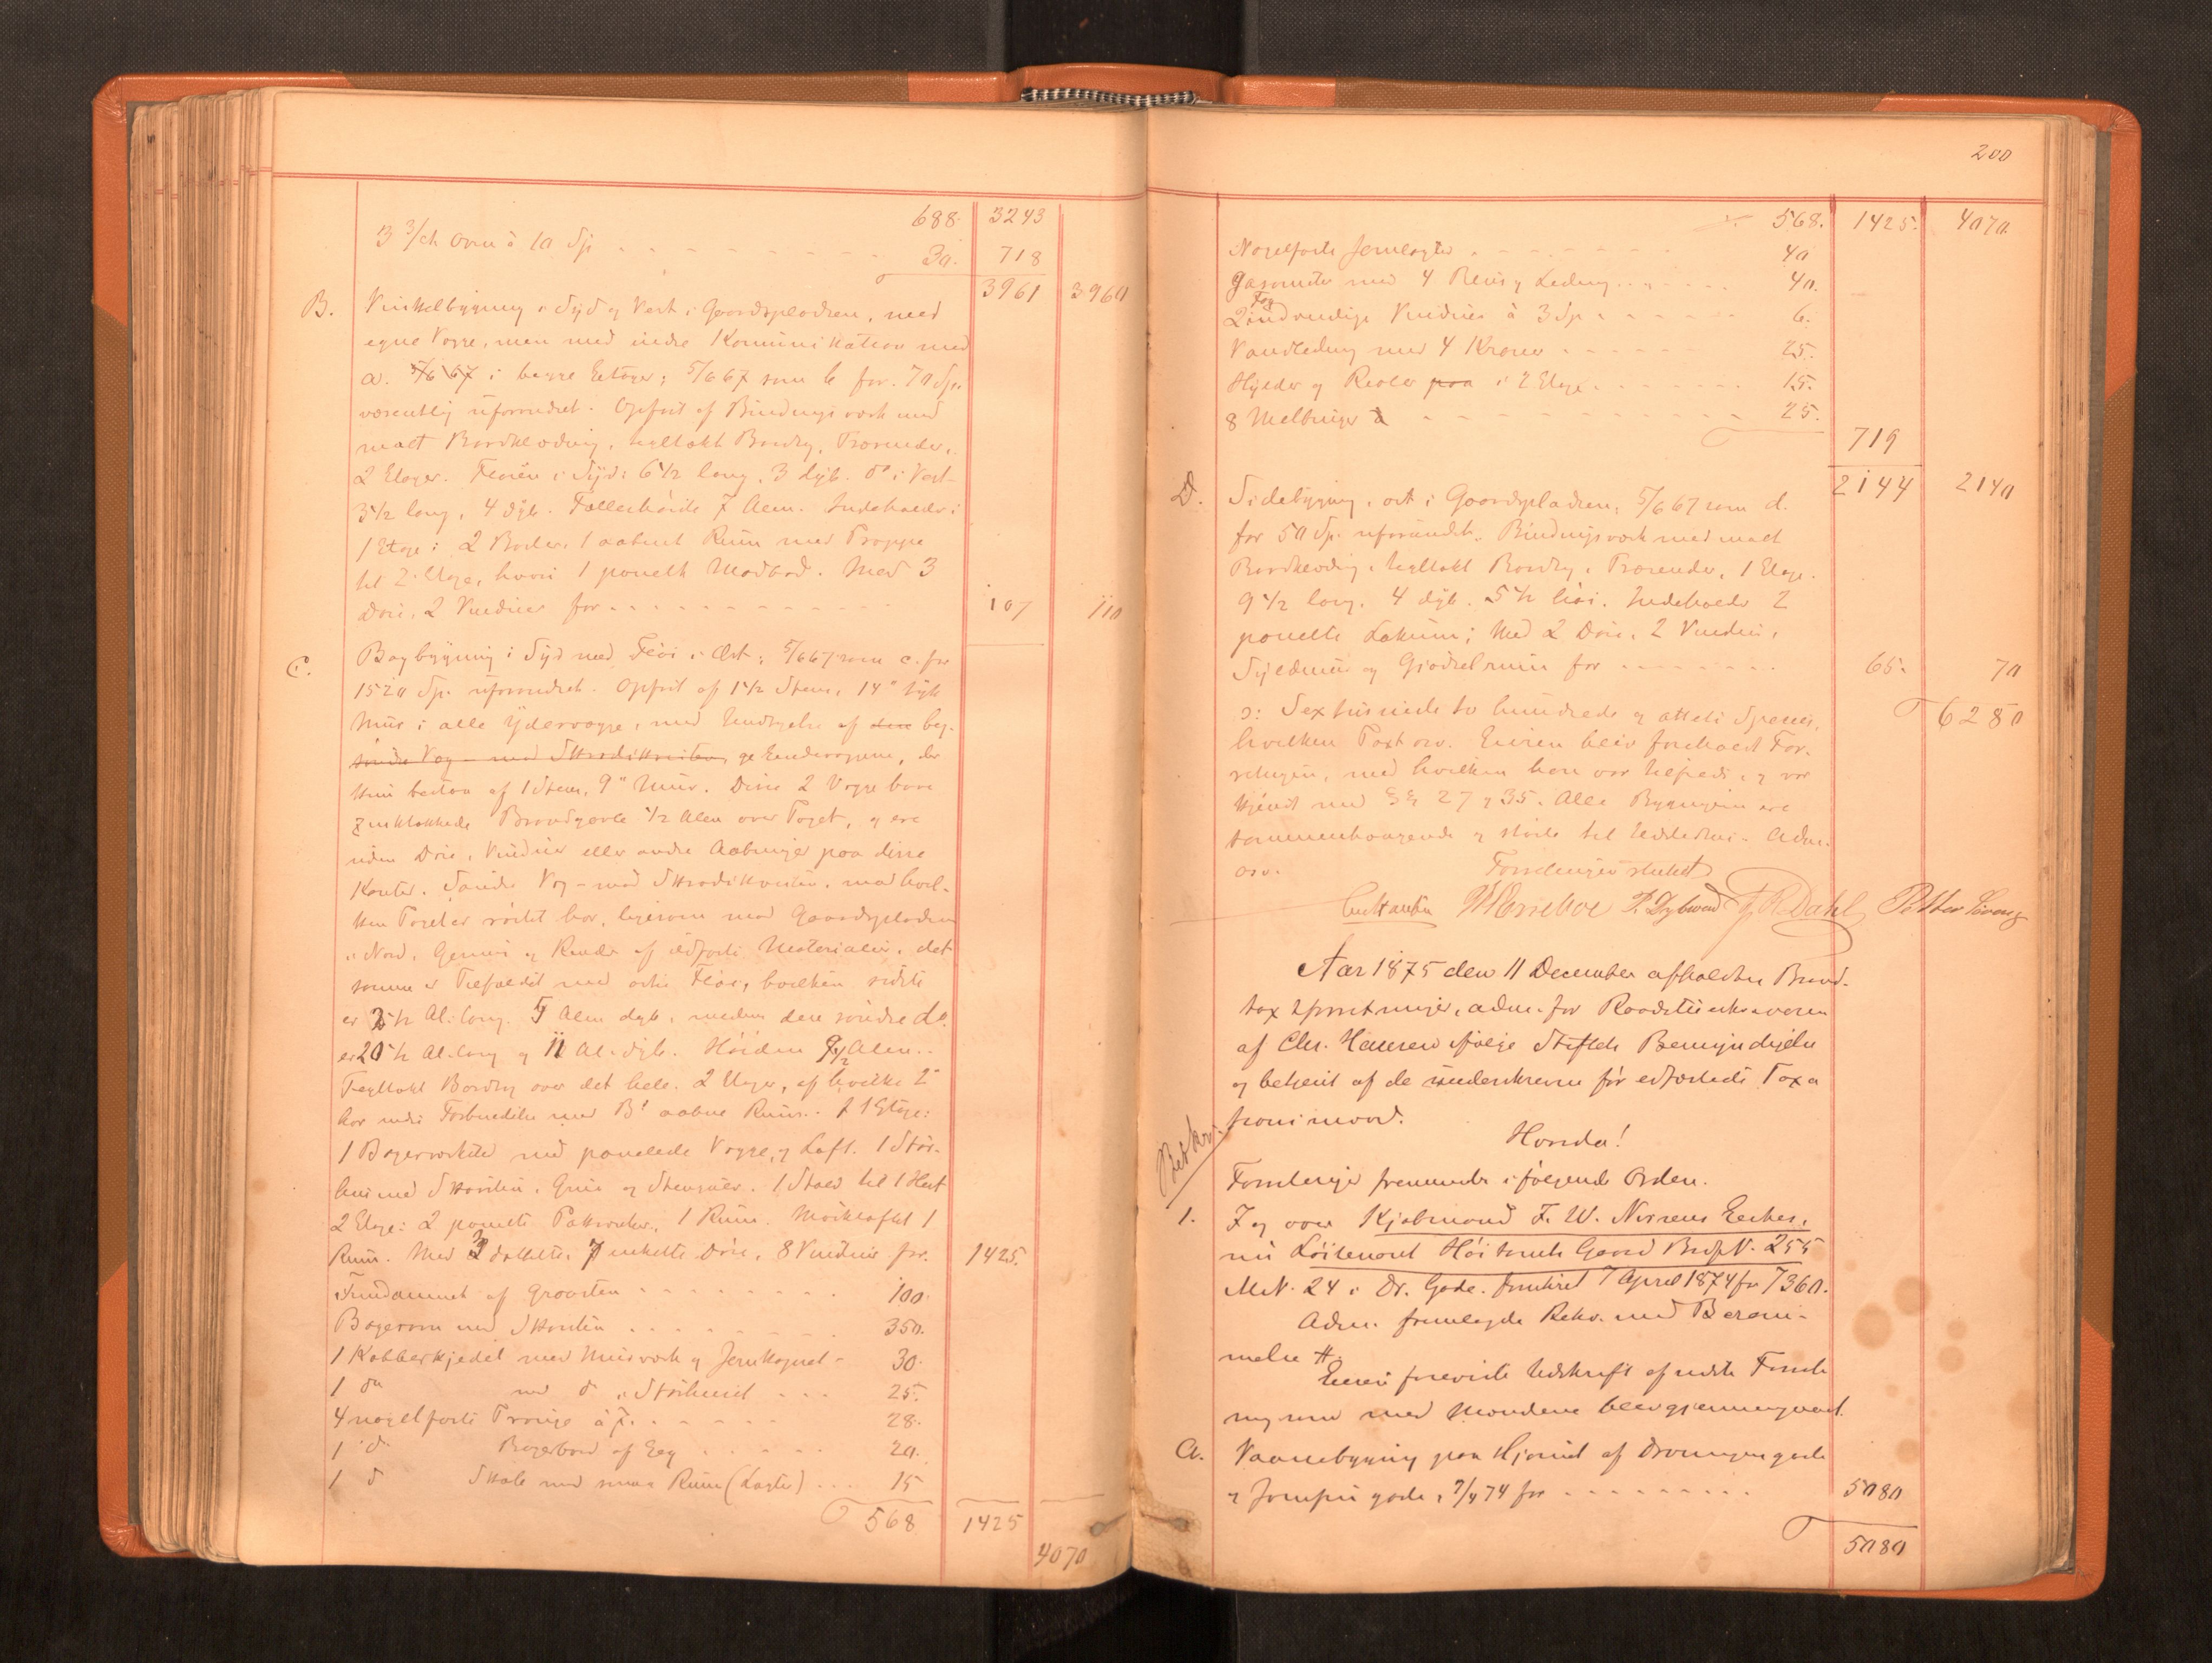 688. 3243
3 3/ch Ovne à 10 Sp. 30. 718
3961 3960
B. Vinkelbygning i Syd og Vest i Gaardspladsen, med
egne Vægge, men med indre Kommunikation med
a. 5/6 67 i begge Etager; 5/6 67 som b for. 70 Sp.
væsentlig uforandret. Opført af Bindingsværk med
malt Bordklædning, tegltakt Bordtag, Trærender,
2 Etager. Fløien i Syd: 6 1/2 lang, 3 dyb. do i Vest
3 1/2 lang, 4 dyb. Fælleshøide 7 Alen. Indeholder i
1 Etage: 2 Boder, 1 aabent Rum med Trappe
til 2. Etage, hvori 1 panelt Madbod. Med 3
Døre, 2 Vinduer for 107 110
C. Bagbygning i Syd med Fløi i Øst; 5/6 67 som c. for
1520 Sp. uforandret. Opført af 1 1/2 Stens, 14" tyk
Mur i alle Ydervægge, med Undtagelse af den beg-
søndre Væg - mod Skrædikveiten ge Endevæggene, der
kun bestaa af 1 Stens, 9" Mur. Disse 2 Vægge have
zinktækkede Brandgavle 1/2 Alen over Taget, og ere
uden Døre, Vinduer eller andre Aabninger paa disse
Kanter. Søndre Væg - mod Skrædikveiten, mod hvil-
ken Taget er reist har, ligesom mod Gaardspladsen
i Nord, Gesims og Render af ildfaste Materialier, det
samme er Tilfældet med østre Fløi, hvilken sidste
er 25 1/2 Al. lang. 5 Alen dyb, medens den søndre do.
er 20 1/2 Al. lang og 11 Al. dyb. Høiden 9 1/2 Alen.
Tegltakt Bordtag over det hele. 2 Etager, af hvilke 2
har indre Forbindelse med B's aabne Rum. I 1 Etage:
1 Bagerværksted med panelede Vægge og Loft. 1 Stør-
hus med Skorsten, Grue og Stengulv. 1 Stald til 1 Hest
2 Etage: 2 panelte Pakboder, 1 Rum. Mørkloftet 1
Rum. Med 3 dobbelte, 7 enkelte Døre, 8 Vinduer for. 1425.
Fundament af Graasten 100.
Bagerovn med Skorsten 350.
1 Kobberkjedel med Murværk og Jernkapsel - 30.
1 do med do i Størhuset 25.
4 nagelfaste Trouge à 7. 28.
1 do Bagerbord af Eeg 20.
1 do Skab med smaa Rum (Lagte) 15
568 1425
4070
200
568. 1425. 4070.
Nagelfaste Jernlagter 40
Gasometer med 4 Blus og Ledning 40.
2 Fag indvendige Vinduer à 3 Sp. 6.
Vandledning med 4 Kraner 25.
Hylder og Reoler paa i 2 Etage 15.
8 Melbinger à 25.
719
2144 2140
D. Sidebygning, øst i Gaardspladsen; 5/6 67 som d.
for 50 Sp. uforandret. Bindingsværk med malt
Bordklædning, tegltakt Bordtag, Trærender, 1 Etage.
9 1/2 lang. 4 dyb. 5 1/2 høi. Indeholder 2
panelte Lokum; Med 2 Døre, 2 Vinduer,
Syldmur og Gjødselrum for 65. 70
6280
ɔ: Sextusinde to hundrede og otteti Speciés,
hvilken Taxt osv. Eieren blev foreholdt For-
retningen, med hvilken han var tilfreds, og var
kjendt med §§ 27 og 35. Alle Bygninger ere
sammenhængende og stødte til Udsidhus. Adm.
osv. Forretningen sluttet
W Brieboe P. Dybwad J. R. Dahl Petter
Aar 1875 den 11 December afholdtes Brand-
taxtforretninger, adm. for Raadstueskriveren
af Chr. Hansen ifølge Stiftets Bemyndigelse
og betjent af de underskrevne før edfæstede Taxa
tionsmænd.
Bekr. Handa!
Forretninger fremmedes i følgende Orden.
1. Tag over Kjøbmand F. W. Nissens Enkes,
nu Løitenant Høitomts Gaard Brdp N. 255
M. N. 24 i Dr. Gade. Assureret 7 April 1874 for 7360.
Adm. fremlagde Rekv. med Berami-
melse #.
Eieren foreviste Udskrift af sidste Forret
ning som med Mændene blev gjennemgaaet.
A. Vaanebygning paa Hjørnet af Dronningensgade
og Jomfrugade, 7/4 74 for 5080
5080